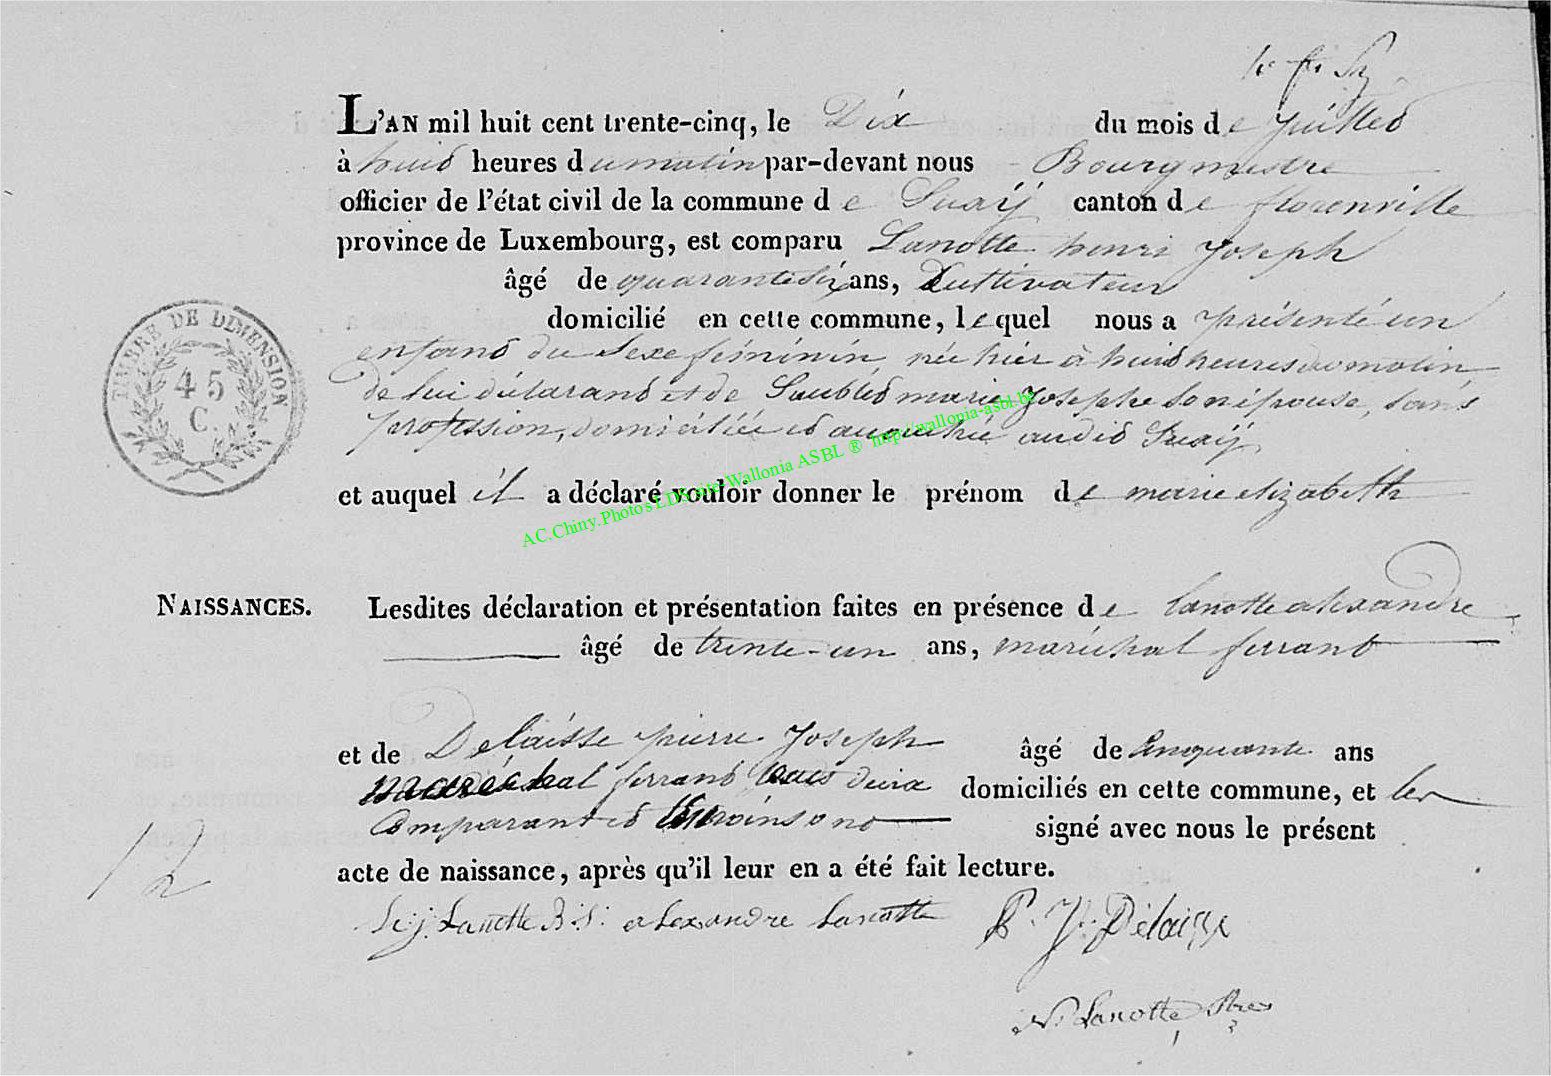 L'AN mil huit cent trente-cinq, le Dix du mois de juillet
à huit heures du matin par-devant nous Bourgmestre
officier de l'état civil de la commune de Suxÿ canton de florenville
province de Luxembourg, est comparu Lanotte henri Joseph
âgé de quarante six ans, Cultivateur
domicilié en cette commune, lequel nous a présenté un
enfant du Sexe féminin, née hier à huit heures du matin
de lui déclarant et de Saublet marie Josephe son épouse, sans
profession, domiciliée et audit Suxÿ
et auquel il a déclaré vouloir donner le prénom de marie elizabeth
AC.Chiny.Photo's LDS site-Wallonia ASBL ® http://wallonia-asbl.be
TIMBRE DE DIMENSION
45
C.
NAISSANCES. Lesdites déclaration et présentation faites en présence de lanotte alexandre
âgé de trente-un ans, maréchal ferrant
et de Delaisse pierre Joseph âgé de Cinquante ans
maréchal ferrant tous deux domiciliés en cette commune, et les
Comparant et témoins ont signé avec nous le présent
12
acte de naissance, après qu'il leur en a été fait lecture.
Lanotte alexandre Lanotte P. J. Delaisse
Lanotte